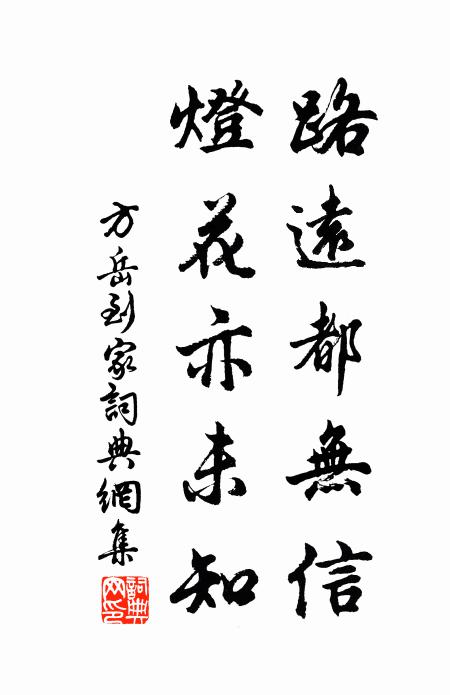 路遠都無信
燈花亦未知
方岳到家詞典網集
詞典网印